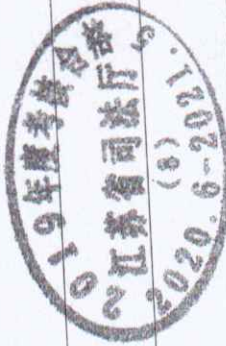 2019年度考核合格
江苏省司法厅
(8)
2020.6-2021.5